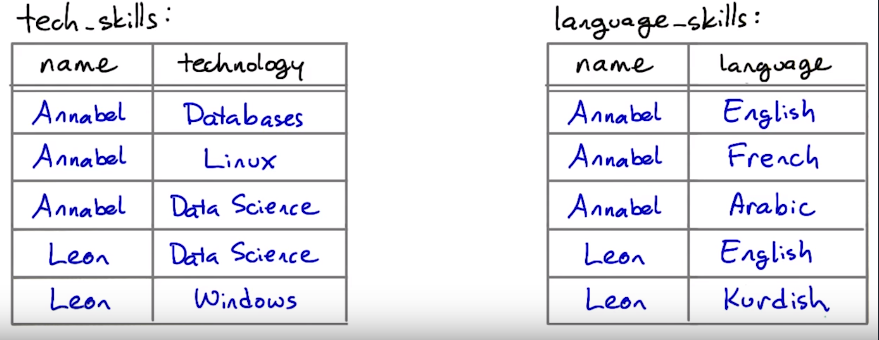 tech_skills:
name technology
Annabel Databases
Annabel Linux
Annabel Data Science
Leon Data Science
Leon Windows
language_skills:
name language
Annabel English
Annabel French
Annabel Arabic
Leon English
Leon Kurdish